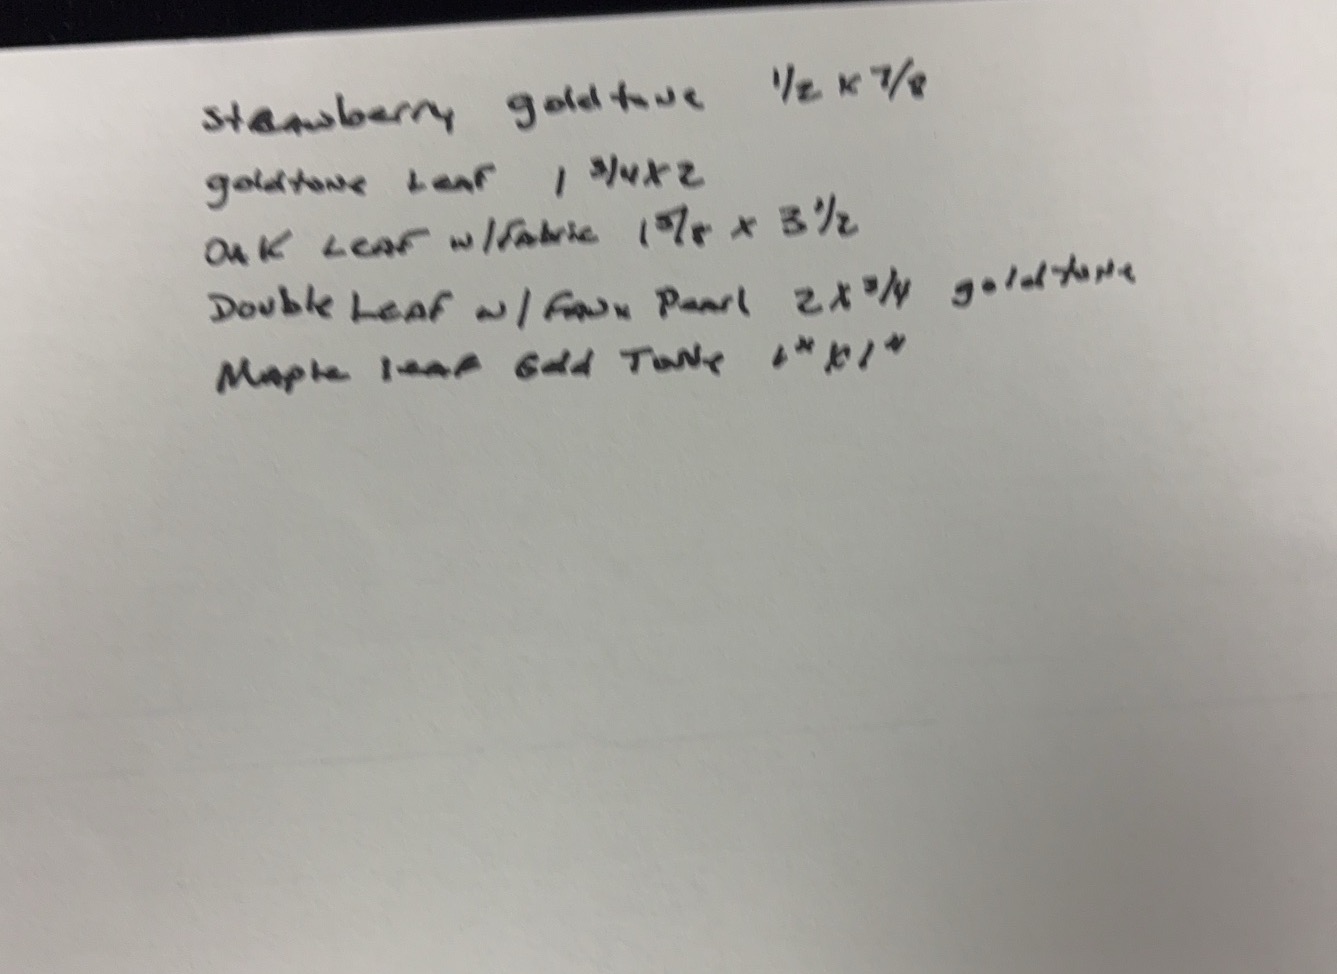 Strawberry goldtone 1/2 x 7/8
goldtone Leaf 1 3/4 x 2
Oak Leaf w/fabric 1 5/8 x 3 1/2
Double Leaf w/ Faux Pearl 2 x 3/4 goldtone
Maple leaf Gold Tone 1" x 1"